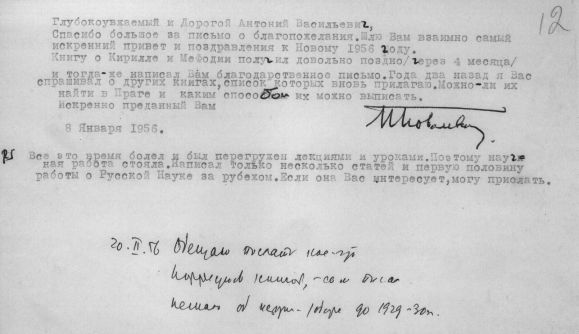 12
Глубокоуважаемый и Дорогой Антоний Васильевич,
Спасибо большое за письмо о благопожелания.Шлю Вам взаимно самый
искренний привет и поздравления к Новому 1956 году.
Книгу о Кирилле и Мефодии получил довольно поздно/через 4 месяца/
и тогда-же написал Вам благодарственное письмо.Года два назад я Вас
спрашивал о других книгах,список которых вновь прилагаю.Можно-ли их
найти в Праге и каким способом их можно выписать.
Искренно преданный Вам
8 Января 1956.
PS Все это время болел и был перегружен лекциями и уроками.Поэтому науч-
ная работа стояла.Написал только несколько статей и первую половину
работы о Русской Науке за рубехом.Если она Вас интересует,могу прислать.
20.II.56 Обещаю послать кое-что